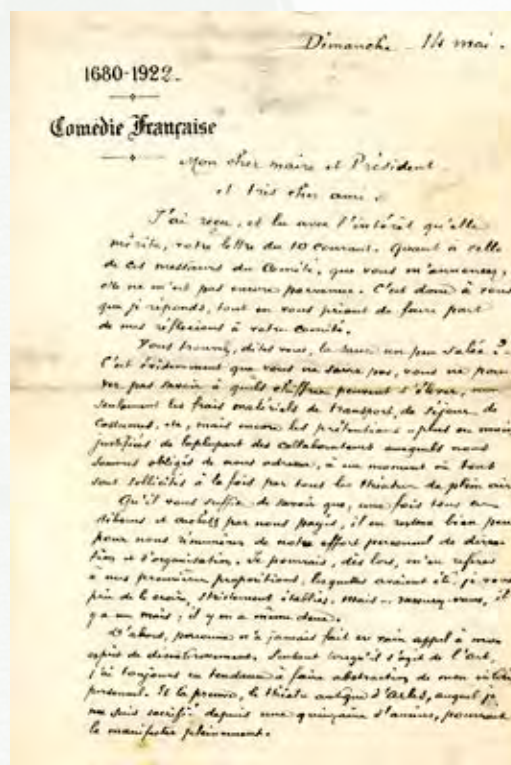 Dimanche 14 mai.
1680-1922.
Comédie Française
Mon cher maire et Président
et très cher ami,
J'ai reçu, et lu avec l'intérêt qu'elle
mérite, votre lettre du 10 courant. Quant à celle
de ces messieurs du Comité, que vous m'annoncez,
elle ne m'est pas encore parvenue. C'est donc à vous
que je réponds, tout en vous priant de faire part
de mes réflexions à votre comité.
Vous trouvez, dites vous, la sauce un peu salée ?
C'est évidemment que vous ne savez pas, vous ne pou-
vez pas savoir à quels chiffres peuvent s'élever, non
seulement les frais matériels de transport, de séjour, de
costumes, etc, mais encore les prétentions plus ou moins
justifiées de la plupart des collaborateurs auxquels nous
sommes obligés de nous adresser, à un moment où tous
sont sollicités à la fois par tous les théâtres de plein air.
Qu'il vous suffise de savoir que, une fois tous ces
et par nous payés, il en restera bien peu
pour nous rémunérer de notre effort personnel de direc-
tion et d'organisation. Je pourrais, dès lors, m'en référer
à nos premières propositions, lesquelles avaient été, je vous
prie de le croire, strictement établies. Mais - rassurez-vous, il
y a un mais ; il y en a même deux.
D'abord, personne n'a jamais fait en vain appel à mon
esprit de désintéressement. Surtout lorsqu'il s'agit de l'art,
j'ai toujours eu tendance à faire abstraction de mon intérêt
personnel. Et la preuve, le théâtre antique d'Arles, auquel je
me suis sacrifié depuis une quinzaine d'années, pourrait
le manifester pleinement.